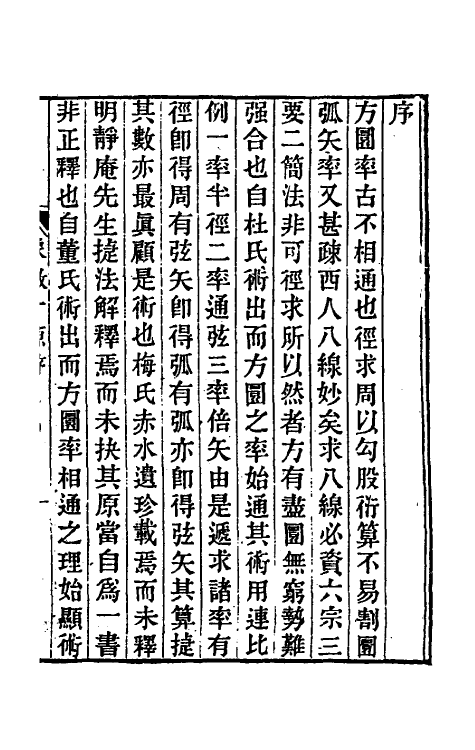 序
方圜率古不相通也徑求周以勾股衍算不易割圜
弧矢率又甚疎西人八線妙矣求八線必資六宗三
要二簡法非可徑求所以然者方有盡圜無窮勢難
强合也自杜氏術出而方圜之率始通其術用連比
例一率半徑二率通弦三率倍矢由是遞求諸率有
徑卽得周有弦矢卽得弧有弧亦卽得弦矢其算捷
其數亦最眞顧是術也梅氏赤水遺珍載焉而未釋
明靜庵先生捷法解釋焉而未抉其原當自爲一書
非正釋也自董氏術出而方圜率相通之理始顯術